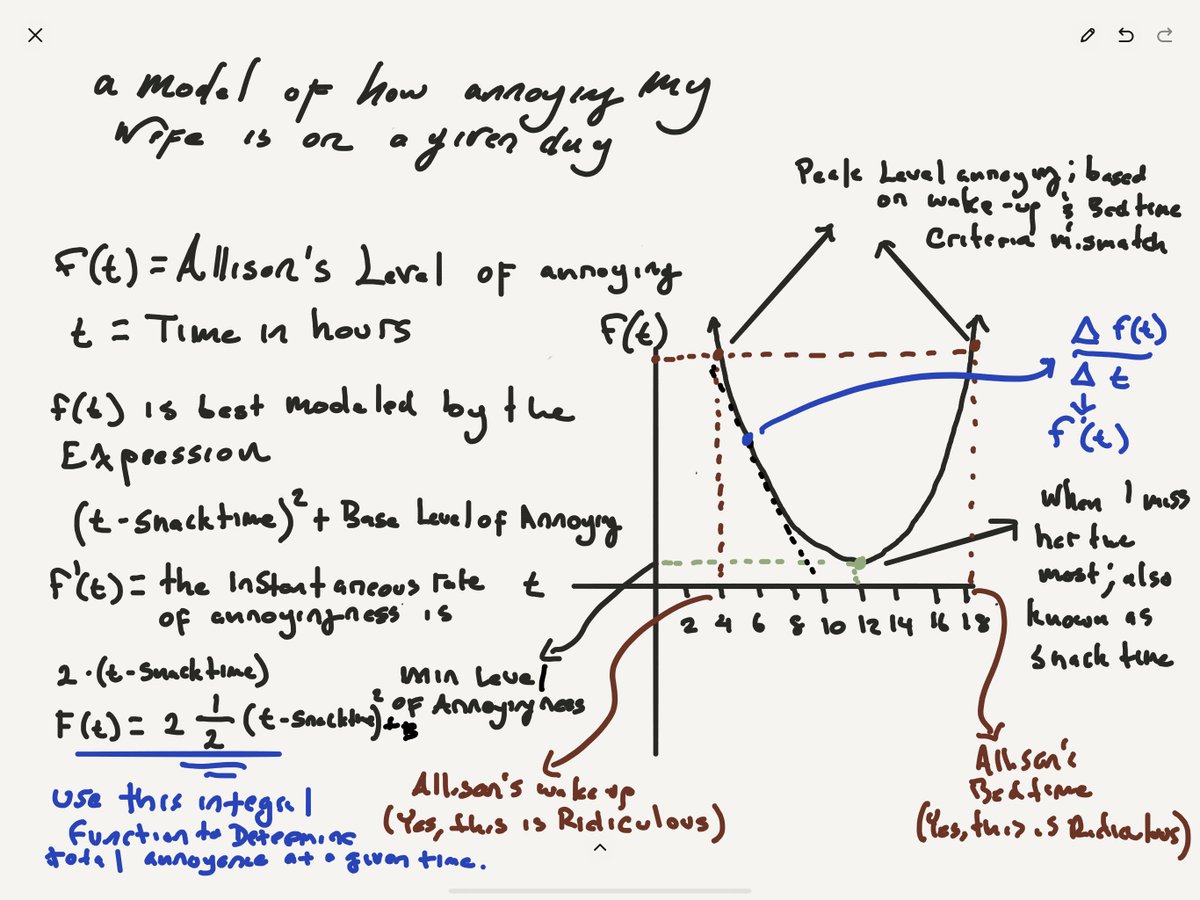 a model of how annoying my
wife is on a given day
Peak Level annoying; based
on wake-up & Bedtime
Criteria mismatch
F(t) = Allison's Level of annoying
t = Time in hours
F(t)
Δ f(t)
Δ t
f'(t)
f(t) is best modeled by the
Expression
(t - snacktime)² + Base Level of Annoying
When I miss
her the
most; also
known as
snack time
f'(t) = the instantaneous rate
of annoyingness is
t
2 4 6 8 10 12 14 16 18
2 · (t - snacktime)
Min Level
of Annoyingness
F(t) = 2 1/2 (t - snacktime)² + B
Allison's wake up
(Yes, this is Ridiculous)
Allison's
Bedtime
(Yes, this is Ridiculous)
Use this integral
Function to Determine
total annoyance at a given time.